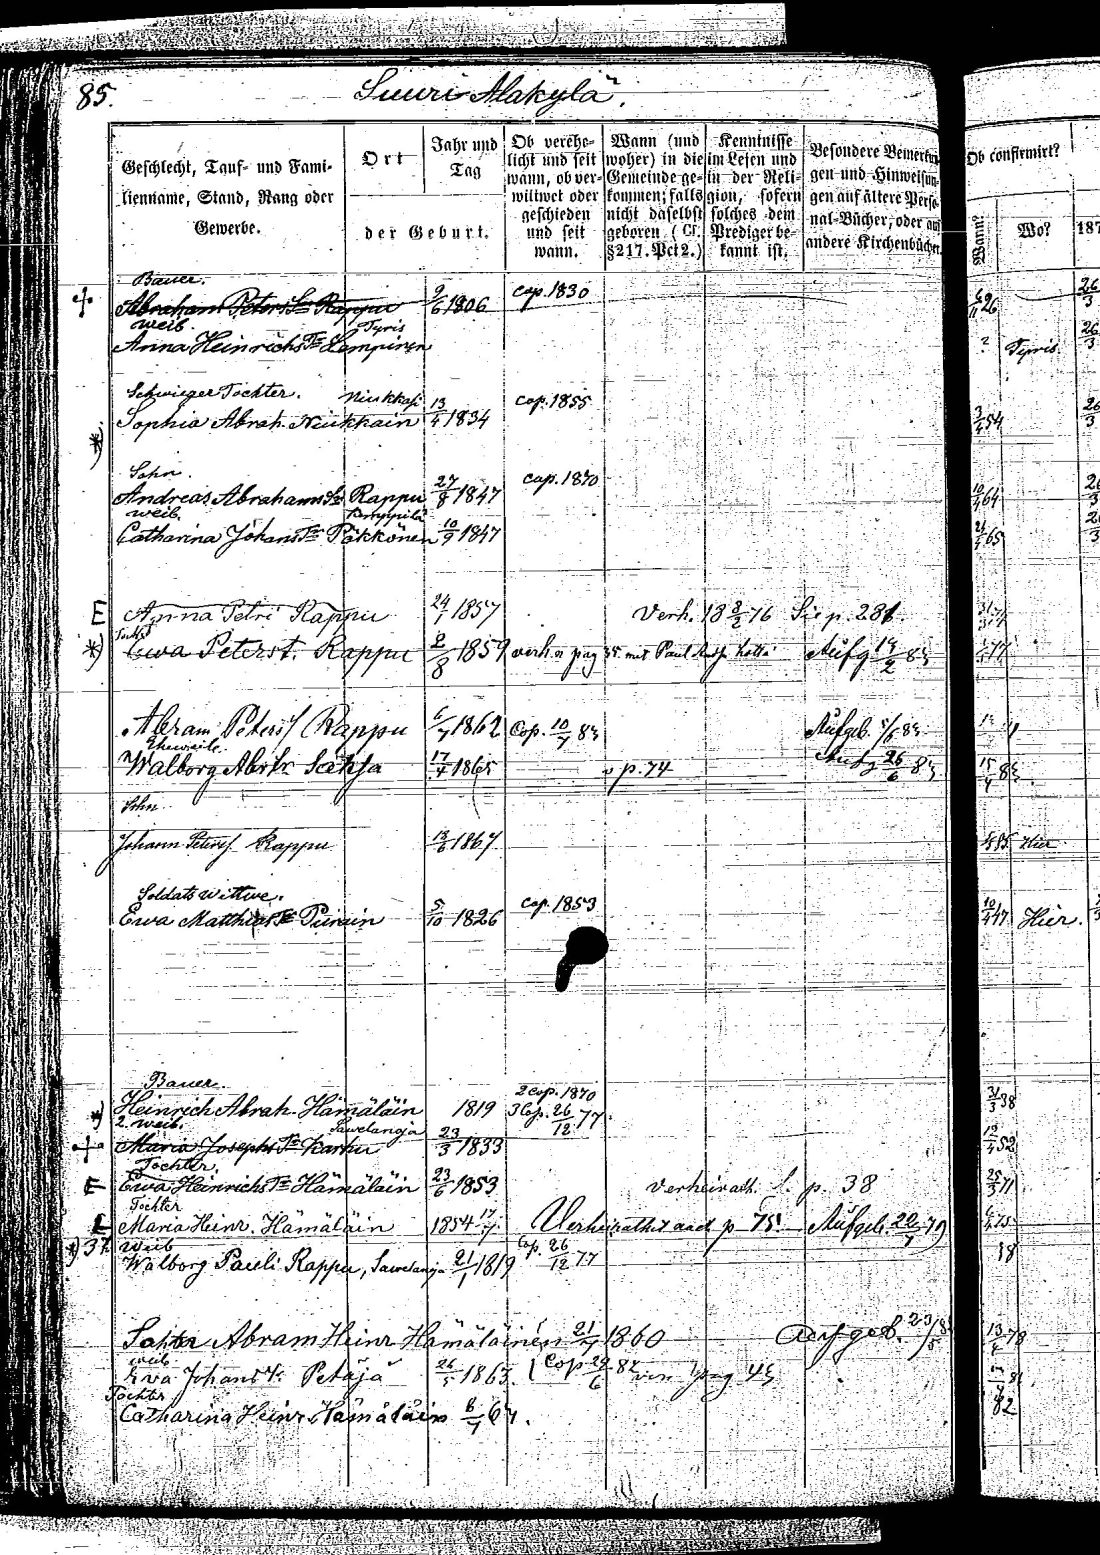 85.
Suuri Alakylä.
Geschlecht, Tauf- und Fami-
lienname, Stand, Rang oder
Gewerbe.
Ort
Jahr und
Tag
der Geburt.
Ob verehe-
licht und seit
wann, ob ver-
wittwet oder
geschieden
und seit
wann.
Wann (und
woher) in die
Gemeinde ge-
kommen; falls
nicht daselbst
geboren (Cf.
§217. Pct 2.)
Kenntnisse
im Lesen und
in der Reli-
gion, sofern
solches dem
Prediger be-
kannt ist.
Besondere Bemerkun-
gen und Hinweisun-
gen auf ältere Perso-
nal-Bücher, oder auf
andere Kirchenbücher.
Ob confirmirt?
Wann?
Wo?
187
Bauer.
Abraham Peters Sn Rappu 9/6 1806 cop. 1830 26/3
weib. Tyris
Anna Heinrichs Tr Lempinen ? Tyris 26/3
Schwieger Tochter. Niukkas
Sophia Abrah. Niukkain 13/4 1834 cop. 1855 3/4 54 26/3
Sohn.
Andreas Abrahams Sn Rappu 27/8 1847 cop. 1870 10/4 64
weib.
Catharina Johans Tr Päkkönen 10/9 1847 24/4 65
E Anna Petri Rappu 24/1 1857 Verh. 18 8/2 76 Sie p. 281.
Tochter
Ewa Peterst. Rappu 2/8 1859 verh. pag 35. mit Paul Kotta Aufg 14/2 83
Abram Peters Rappu 6/7 1862 Cop. 10/7 83 Aufgeb. 5/6 83
Eheweib.
Walborg Abr. Säkja 17/4 1865 v p. 74 Aufg 26/6 83 15/4 83.
Sohn
Johann Peters Rappu 13/6 1867 85 Hier
Soldats Wittwe.
Ewa Matthias Tr Purain 5/10 1826 cop. 1853 10/4 47 Hier.
Bauer.
Heinrich Abrah. Hämäläin 1819 2 cop. 1870 3 Cop. 26/12 77. 31/3 38
2. weib. Sawelanoja
Maria Josephs Tr Karhu 23/3 1833 13/4 52
Tochter.
E Ewa Heinrichs Tr Hämäläin 23/6 1853 Verheirath. S. p. 38 25/3 71
Tochter
E Maria Heinr. Hämäläin 1854 17/7. Verheirathet auch p 75. Aufgeb. 20/1 79
37 Weib
Walborg Pauli Rappu, Sawelanoja 21/1 1819 Cop. 26/12 77
Sohn Abram Heinr Hämäläinen 21/7 1860 Aufgeb. 23/5 8 13/4 78
weib
Eva Johans t. Petäjä 26/5 1863. Cop 29/6 82 von pag 43
Tochter
Catharina Heinr. Hämäläin 8/7 67. 82